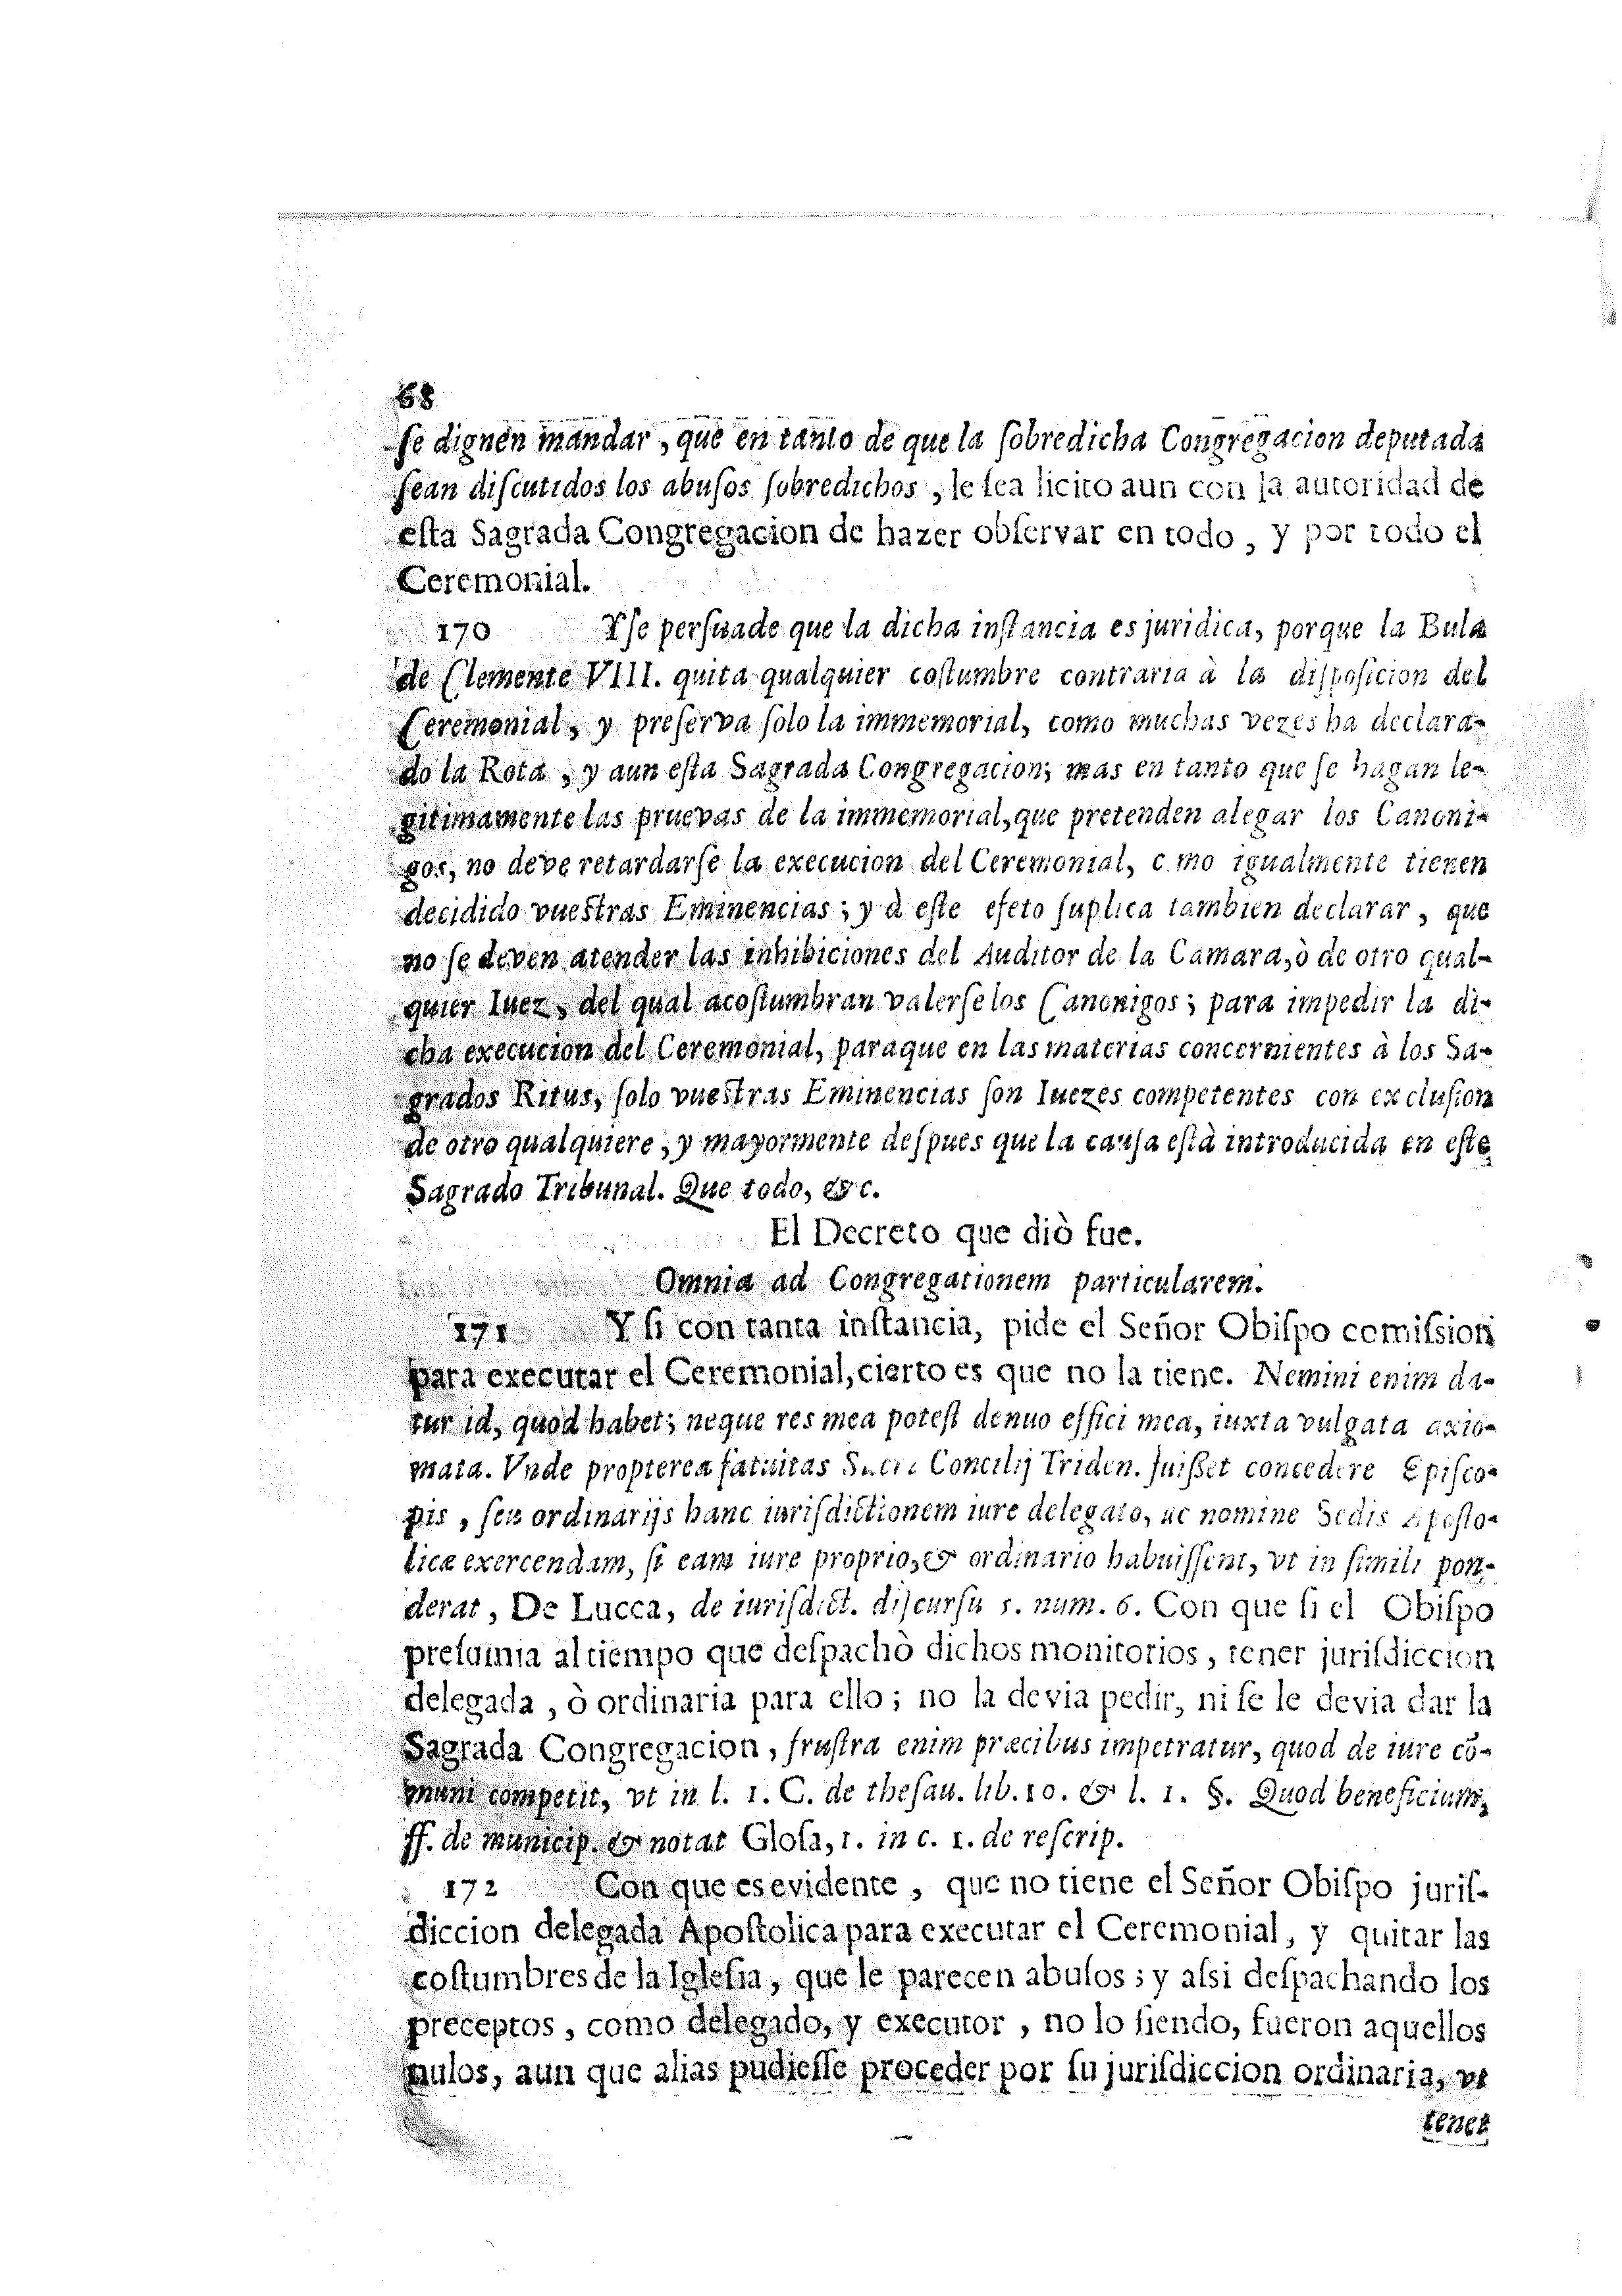 68
ſe dignen mandar, que en tanto de que la ſobredicha Congregacion deputada
ſean diſcutidos los abuſos ſobredichos, le ſea licito aun con la autoridad de
eſta Sagrada Congregacion de hazer obſervar en todo, y por todo el
Ceremonial.
170 Yſe perſuade que la dicha inſtancia es juridica, porque la Bula
de Clemente VIII. quita qualquier coſtumbre contraria à la diſpoſicion del
Ceremonial, y preſerva ſolo la immemorial, como muchas vezes ha declara-
do la Rota, y aun eſta Sagrada Congregacion; mas en tanto que ſe hagan le-
gitimamente las pruevas de la immemorial, que pretenden alegar los Canoni-
gos, no deve retardarſe la execucion del Ceremonial, c mo igualmente tienen
decidido vueſtras Eminencias; y à eſte efeto ſuplica tambien declarar, que
no ſe deven atender las inhibiciones del Auditor de la Camara, ò de otro qual-
quier Iuez, del qual acoſtumbran valerſe los Canonigos; para impedir la di-
cha execucion del Ceremonial, paraque en las materias concernientes à los Sa-
grados Ritus, ſolo vueſtras Eminencias ſon Iuezes competentes con excluſion
de otro qualquiere, y mayormente deſpues que la cauſa eſtà introducida en eſte
Sagrado Tribunal. Que todo, &c.
El Decreto que diò fue.
Omnia ad Congregationem particularem.
171 Y ſi con tanta inſtancia, pide el Señor Obiſpo comiſsion
para executar el Ceremonial, cierto es que no la tiene. Nemini enim da-
tur id, quod habet; neque res mea poteſt denuo effici mea, iuxta vulgata axio-
mata. Vnde propterea fatuitas Sacri Concilij Triden. fuiſſet concedere Epiſco-
pis, ſeu ordinarijs hanc iuriſdictionem iure delegato, ac nomine Sedis Apoſto-
licæ exercendam, ſi eam iure proprio, & ordinario habuiſſent, vt in ſimili pon-
derat, De Lucca, de iuriſdict. diſcurſu 1. num. 6. Con que ſi el Obiſpo
preſumia al tiempo que deſpachò dichos monitorios, tener juriſdiccion
delegada, ò ordinaria para ello; no la devia pedir, ni ſe le devia dar la
Sagrada Congregacion, fruſtra enim præcibus impetratur, quod de iure cõ-
muni competit, vt in l. 1. C. de theſau. lib. 10. & l. 1. §. Quod beneficium,
ff. de municip. & notat Gloſa, 1. in c. 1. de reſcrip.
172 Con que es evidente, que no tiene el Señor Obiſpo juriſ-
diccion delegada Apoſtolica para executar el Ceremonial, y quitar las
coſtumbres de la Igleſia, que le parecen abuſos; y aſsi deſpachando los
preceptos, como delegado, y executor, no lo ſiendo, fueron aquellos
nulos, aun que alias pudieſſe proceder por ſu juriſdiccion ordinaria, vt
tenet